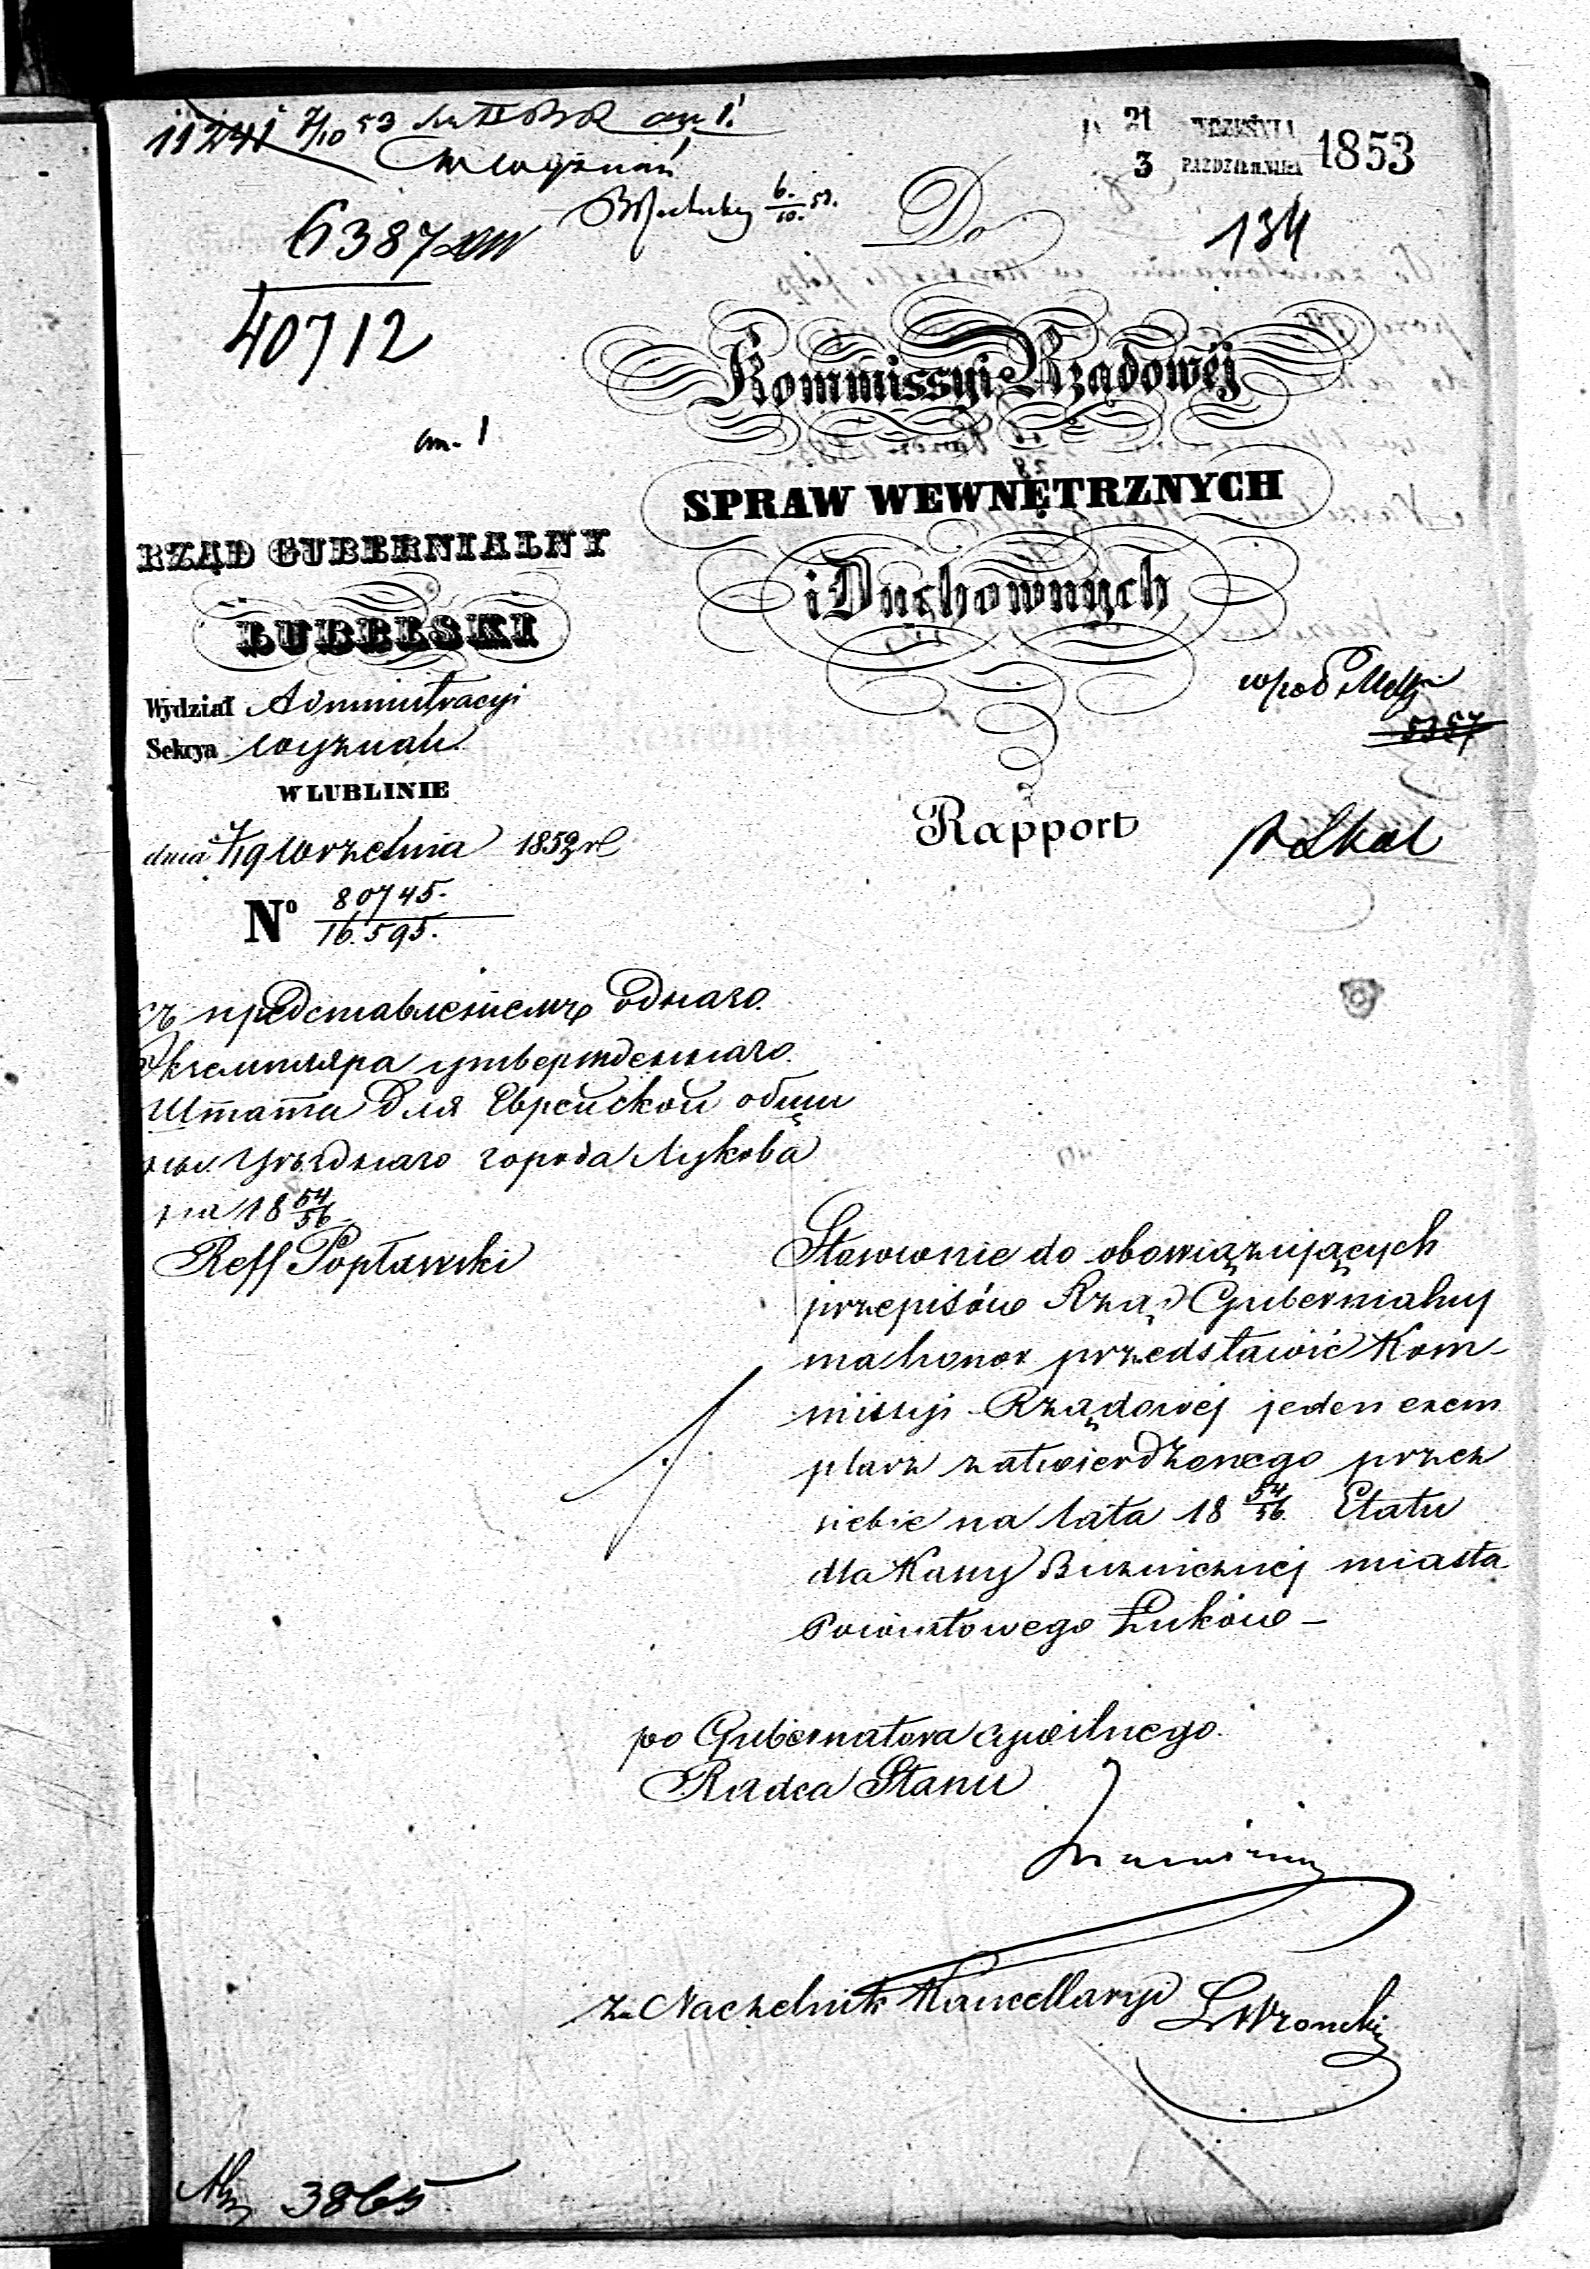 11241 7/10 53
Wyznań
6/10 53.
6387
40712
an. 1
21 WRZEŚNIA
3 PAŹDZIERNIKA 1853
134
Do
Kommissyi Rządowéj
SPRAW WEWNĘTRZNYCH
i Duchownych
RZĄD GUBERNIALNY
LUBELSKI
Wydział Administracyi
Sekcya Wyznań.
W LUBLINIE
dnia 7/19 Września 1853 r
No 80745.
16.595.
5357
Rapport
съ представленіемъ однаго
Экземпляра утвержденнаго
Штата для Еврейской общи
ны Уѣзднаго города Лукова
на 18 54/56
Reff Popławski
Stosownie do obowiązujących
przepisów Rząd Gubernialny
ma honor przedstawić Kom-
missyi Rządowej jeden exem
plarz zatwierdzonego przez
siebie na lata 18 54/56 Etatu
dla Kassy Bużniczniej miasta
Powiatowego Łukowa –
po Gubernatora Cywilnego.
Radca Stanu
za Naczelnik Kancellaryi LWronski
3865